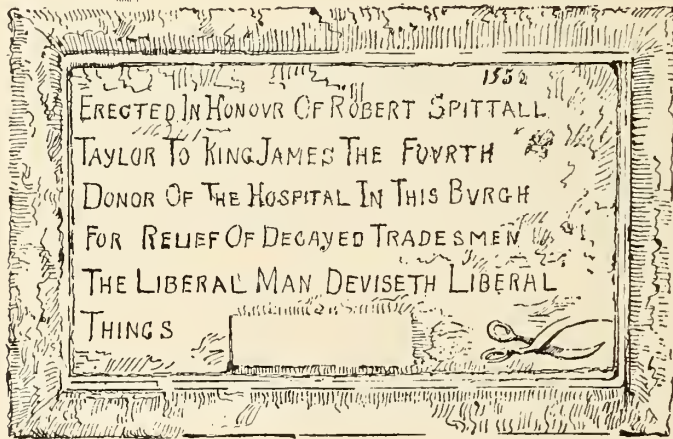 1532
ERECTED IN HONOVR OF ROBERT SPITTALL
TAYLOR TO KING JAMES THE FOVRTH
DONOR OF THE HOSPITAL IN THIS BVRGH
FOR RELIEF OF DECAYED TRADESMEN
THE LIBERAL MAN DEVISETH LIBERAL
THINGS